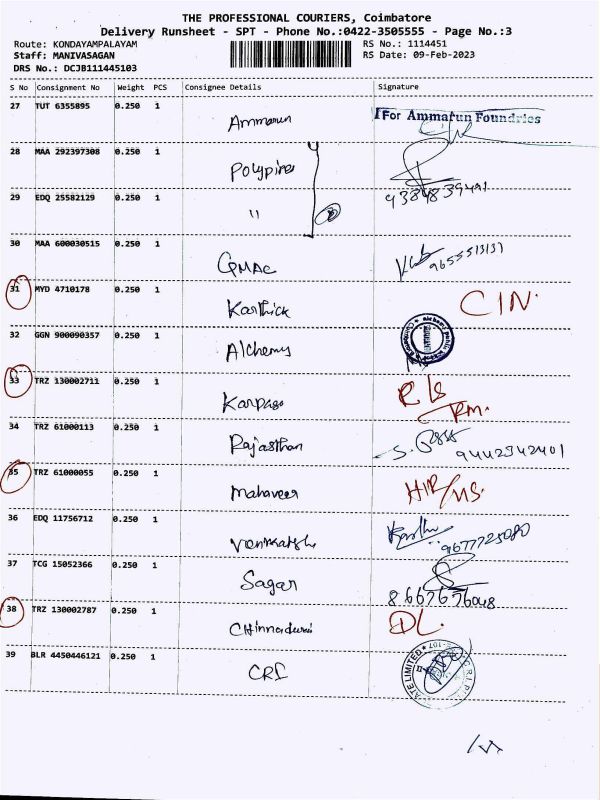 THE PROFESSIONAL COURIERS, Coimbatore
Delivery Runsheet - SPT - Phone No.:0422-3505555 - Page No.:3
Route: KONDAYAMPALAYAM RS No.: 1114451
Staff: MANIVASAGAN RS Date: 09-Feb-2023
DRS No.: DCJB111445103
S No Consignment No Weight PCS Consignee Details Signature
27 TUT 6355895 0.250 1 Ammarun For Ammarun Foundries
28 MAA 292397308 0.250 1 Polypipes 9384839491
29 EDQ 25582129 0.250 1 "
30 MAA 600030515 0.250 1 GMAC 9655513131
31 MYD 4710178 0.250 1 Karthick CIN.
32 GGN 900090357 0.250 1 Alchemy
33 TRZ 130002711 0.250 1 Karpaga R/s Rm.
34 TRZ 61000113 0.250 1 Rajasthan 9442342401
35 TRZ 61000055 0.250 1 Mahaveer
36 EDQ 11756712 0.250 1 9677725080
37 TCG 15052366 0.250 1 Sagar 8667676048
38 TRZ 130002787 0.250 1 Chinnadurai DL.
39 BLR 4450446121 0.250 1 CRI